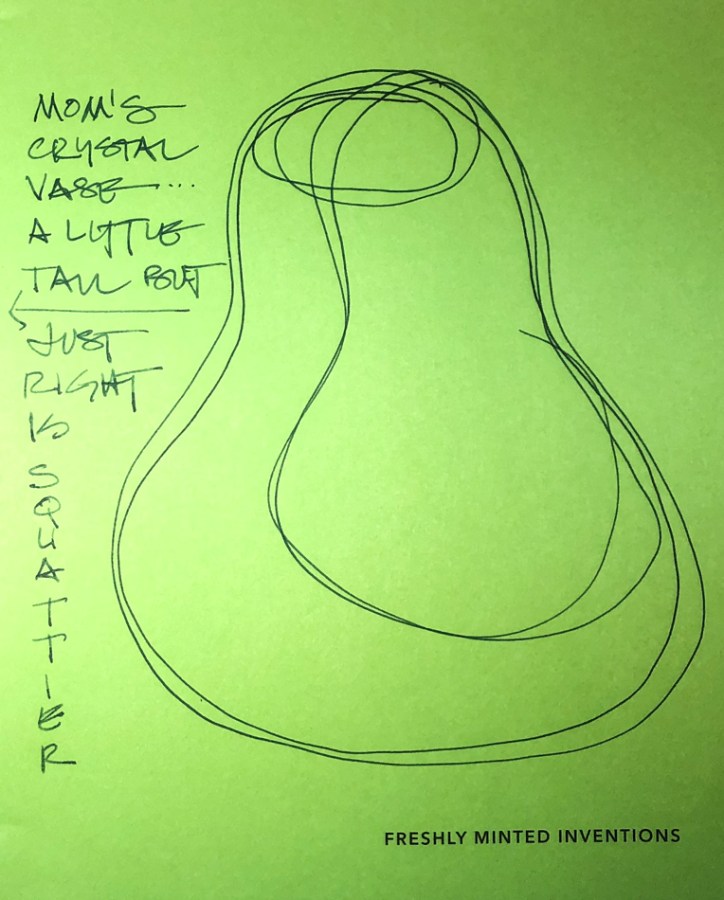 MOM'S
CRYSTAL
VASE...
A LITTLE
TALL BUT
JUST
RIGHT
IS
S
Q
U
A
T
T
I
E
R
FRESHLY MINTED INVENTIONS